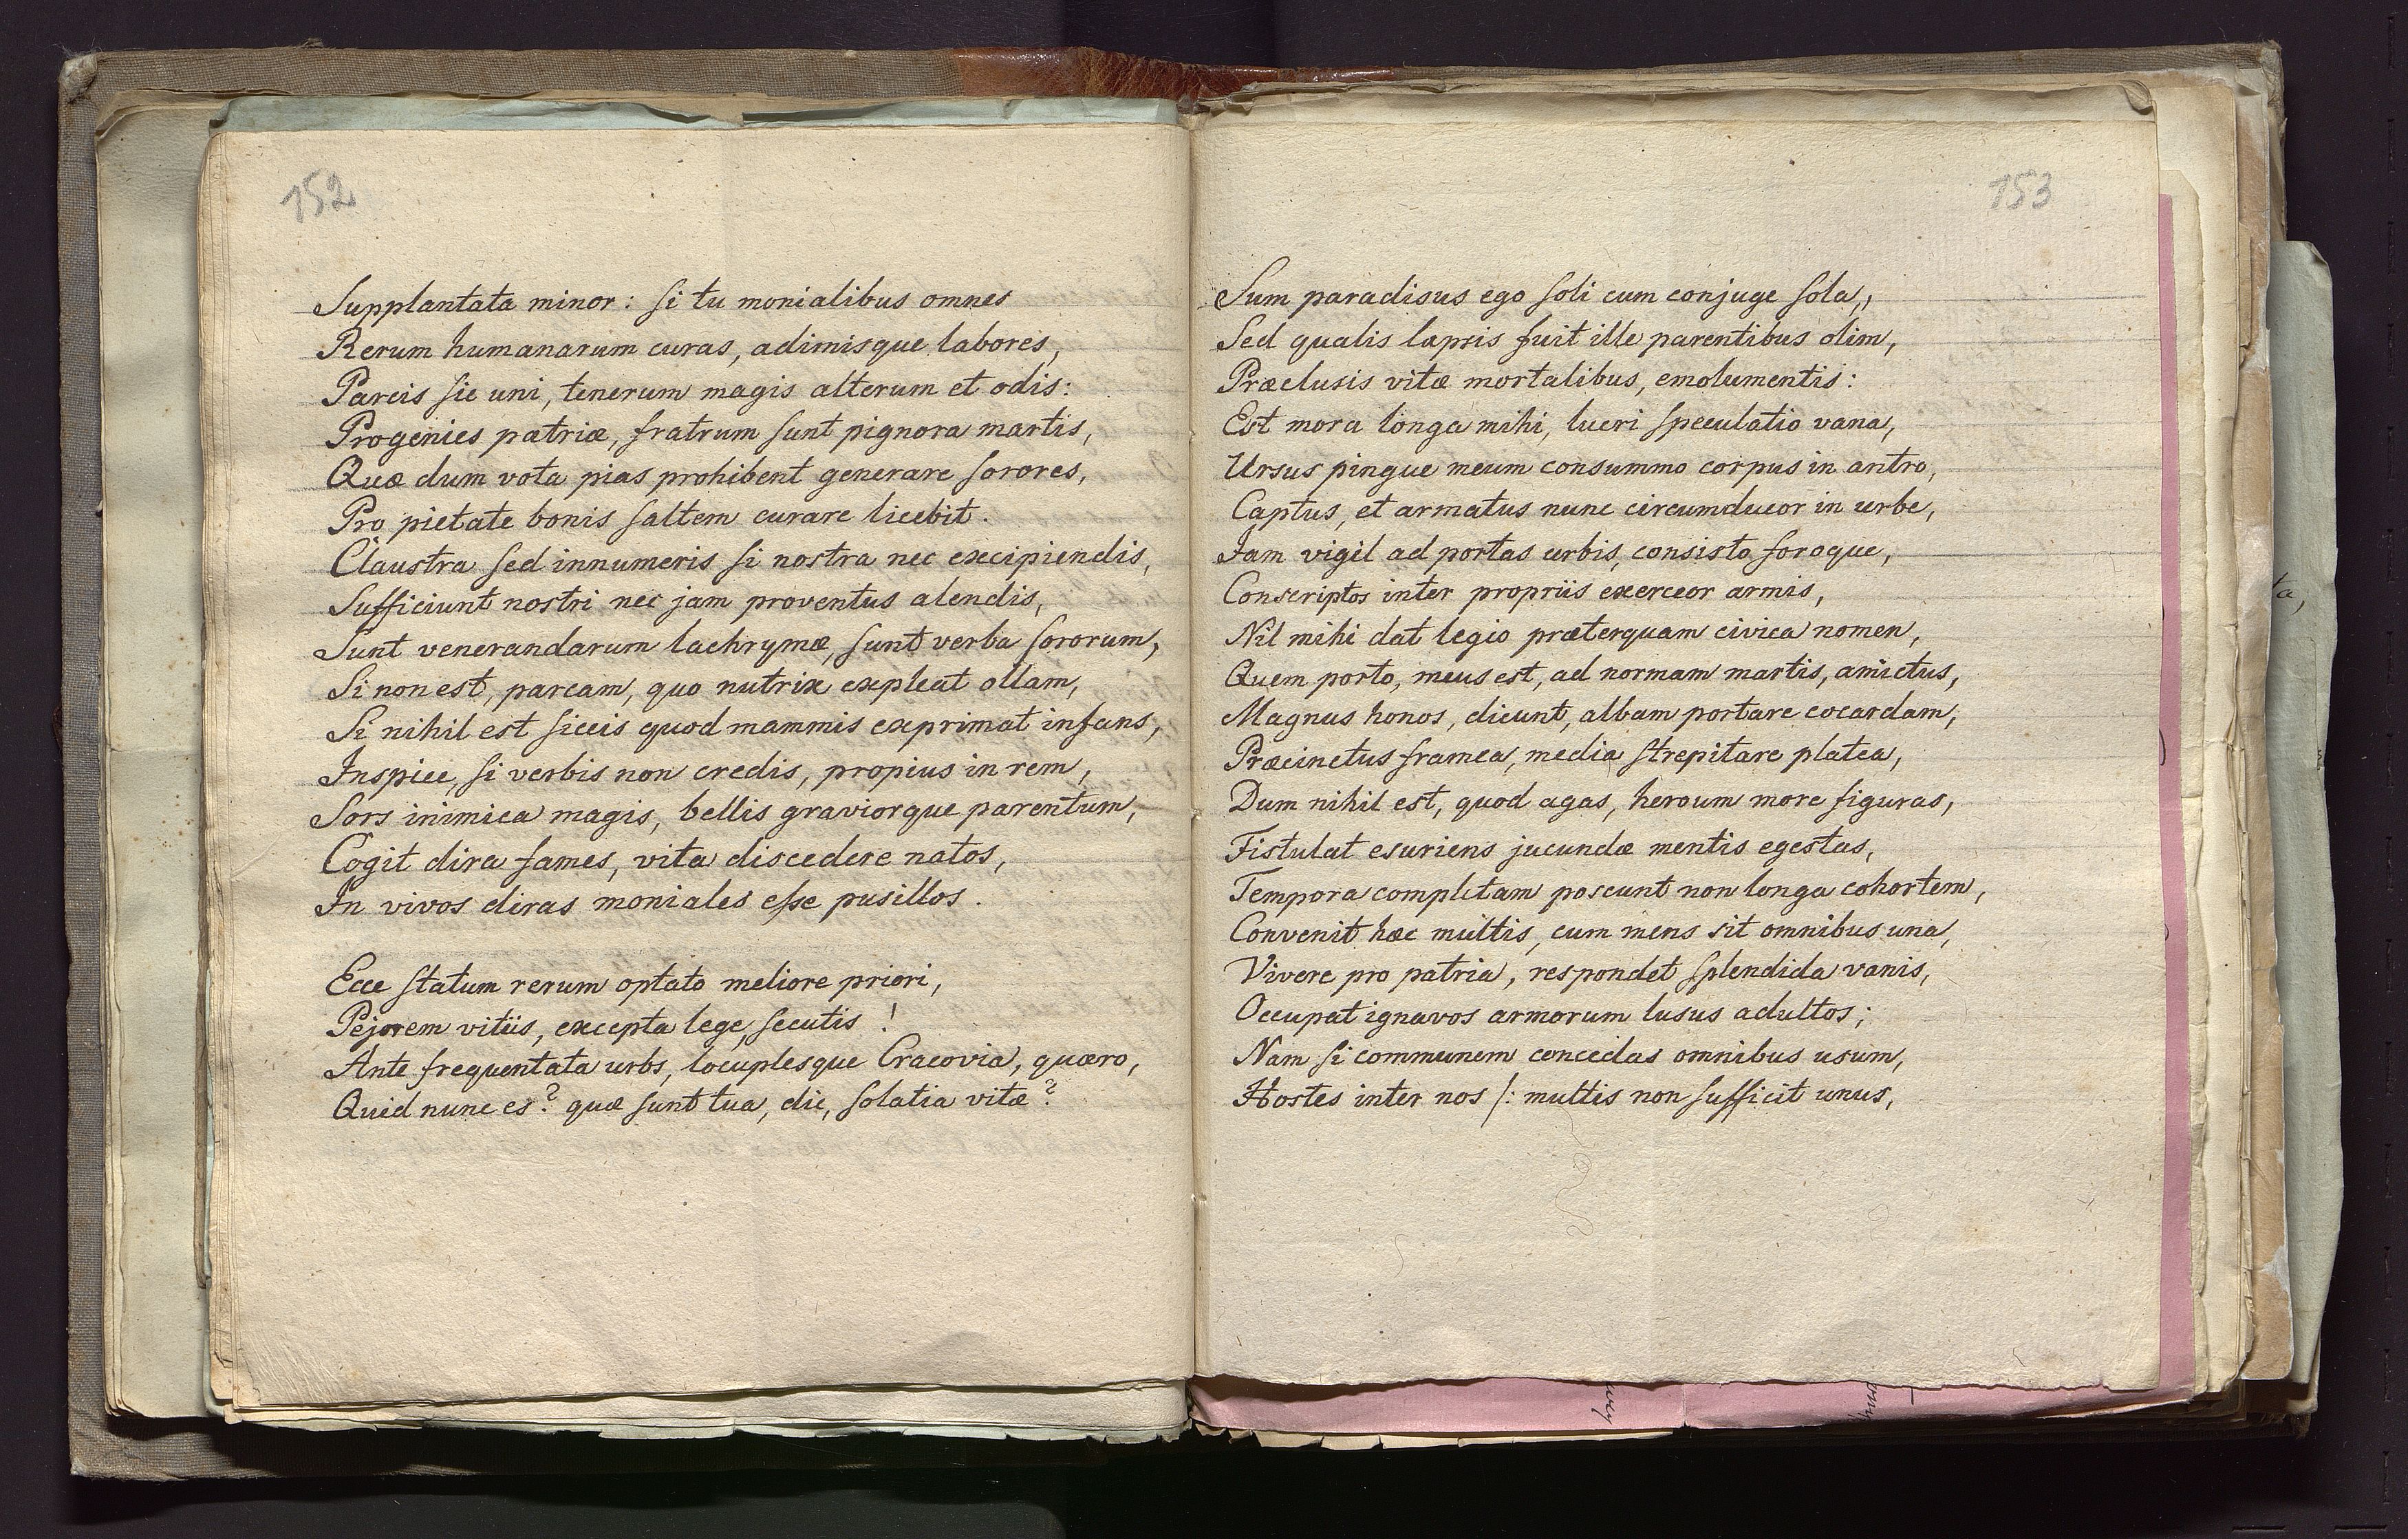 152
Supplantata minor: si tu monialibus omnes
Rerum humanarum curas, adimisque labores,
Parcis sic uni, tenerum magis alterum et odis:
Progenies patriæ, fratrum sunt pignora martis,
Quæ dum vota pias prohibent generare sorores,
Pro pietate bonis saltem curare licebit.
Claustra sed innumeris si nostra nec excipiendis,
Sufficiunt nostri nec jam proventus alendis,
Sunt venerandarum lachrymæ, sunt verba sororum,
Si non est, parcam, quo nutrix expleat ollam,
Si nihil est siccis quod mammis exprimat infans,
Inspice, si verbis non credis, propius in rem,
Sors inimica magis, bellis graviorque parentum,
Cogit dira fames, vita discedere natos,
In vivos diras moniales esse pusillos.
Ecce statum rerum optato meliore priori,
Pejorem vitiis, excepta lege, secutis!
Ante frequentata urbs, locuplesque Cracovia, quæro,
Quid nunc es? quæ sunt tua, dic, solatia vitæ?
153
Sum paradisus ego soli cum conjuge sola,,
Sed qualis lapsis fuit ille parentibus olim,
Præclusis vitæ mortalibus, emolumentis:
Est mora longa mihi, lucri speculatio vana,
Ursus pingue meum consummo corpus in antro,
Captus, et armatus nunc circumducor in urbe,
Jam vigil ad portas urbis, consisto foroque,
Conscriptos inter propriis exerceor armis,
Nil mihi dat legio præterquam civica nomen,
Quem porto, meus est, ad normam martis, amictus,
Magnus honos, dicunt, albam portare cocardam,
Præcinctus framea, media strepitare platea,
Dum nihil est, quod agas, heroum more figuras,
Fistulat esuriens jucundæ mentis egestas,
Tempora completam poscunt non longa cohortem,
Convenit hæc multis, cum mens sit omnibus una,
Vivere pro patria, respondet splendida vanis,
Occupat ignavos armorum lusus adultos;
Nam si communem concedas omnibus usum,
Hostes inter nos /: multis non sufficit unus,